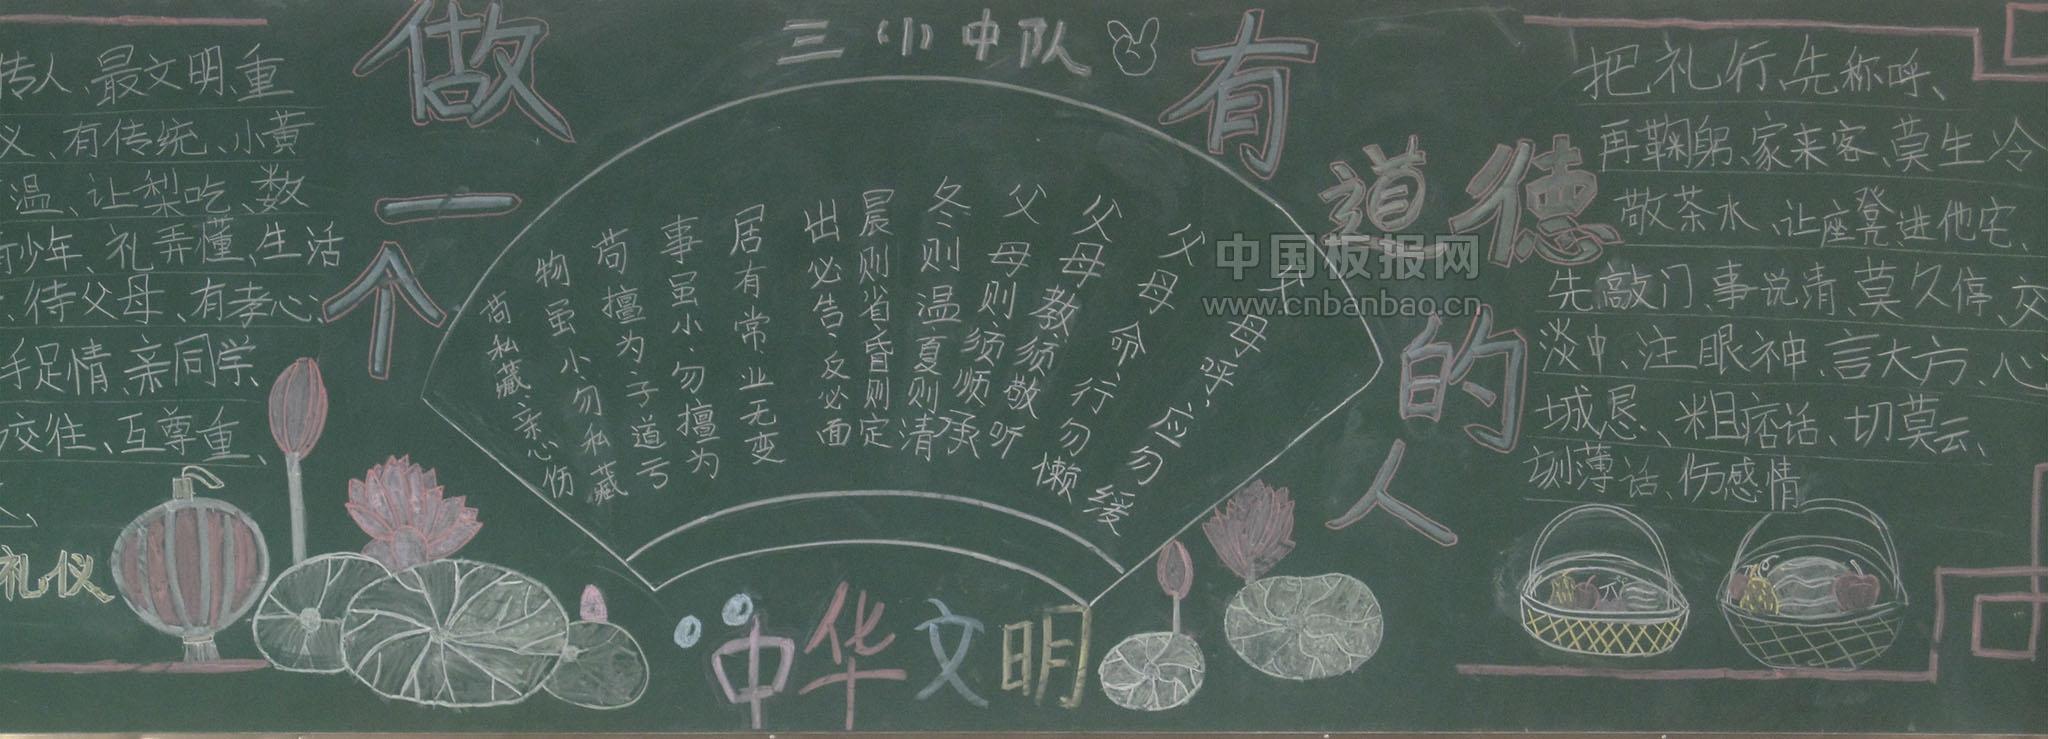 三(1)中队
做一个有道德的人
传人、最文明、重
义、有传统、小黄
温、让梨吃、数
少年、礼弄懂、生活
待父母、有孝心
手足情、亲同学、
交往、互尊重、
礼仪
父母呼、应勿缓
父母命、行勿懒
父母教、须敬听
父母则须顺承
冬则温、夏则清
晨则省昏则定
出必告、反必面
居有常、业无变
事虽小、勿擅为
苟擅为、子道亏
物虽小、勿私藏
苟私藏、亲心伤
中华文明
把礼行、先称呼、
再鞠躬、家来客、莫生冷
敬茶水、让座凳、进他宅、
先敲门、事说清、莫久停、交
淡中、注眼神、言大方、心
城恳、粗痞话、切莫云、
刻薄话、伤感情
中国板报网
www.cnbanbao.cn